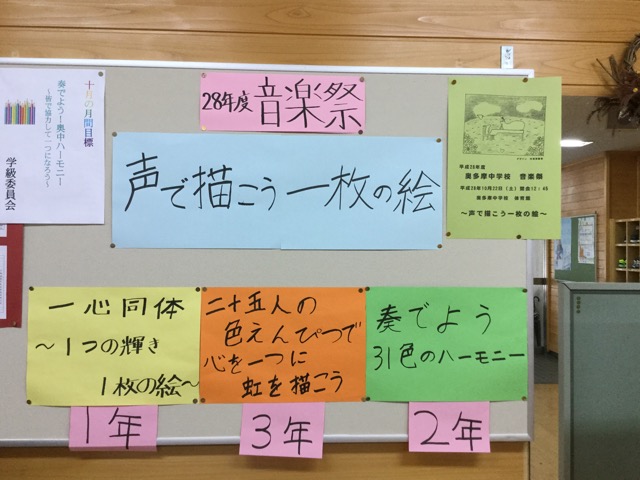 十月の月間目標
奏でよう！奥中ハーモニー
～皆で協力して一つになろう～
学級委員会
28年度 音楽祭
声で描こう 一枚の絵
平成28年度
奥多摩中学校 音楽祭
平成28年10月22日（土）開会12：45
奥多摩中学校 体育館
～声で描こう一枚の絵～
一心同体
～1つの輝き
1枚の絵～
1年
二十五人の
色えんぴつで
心を一つに
虹を描こう
3年
奏でよう
31色のハーモニー
2年